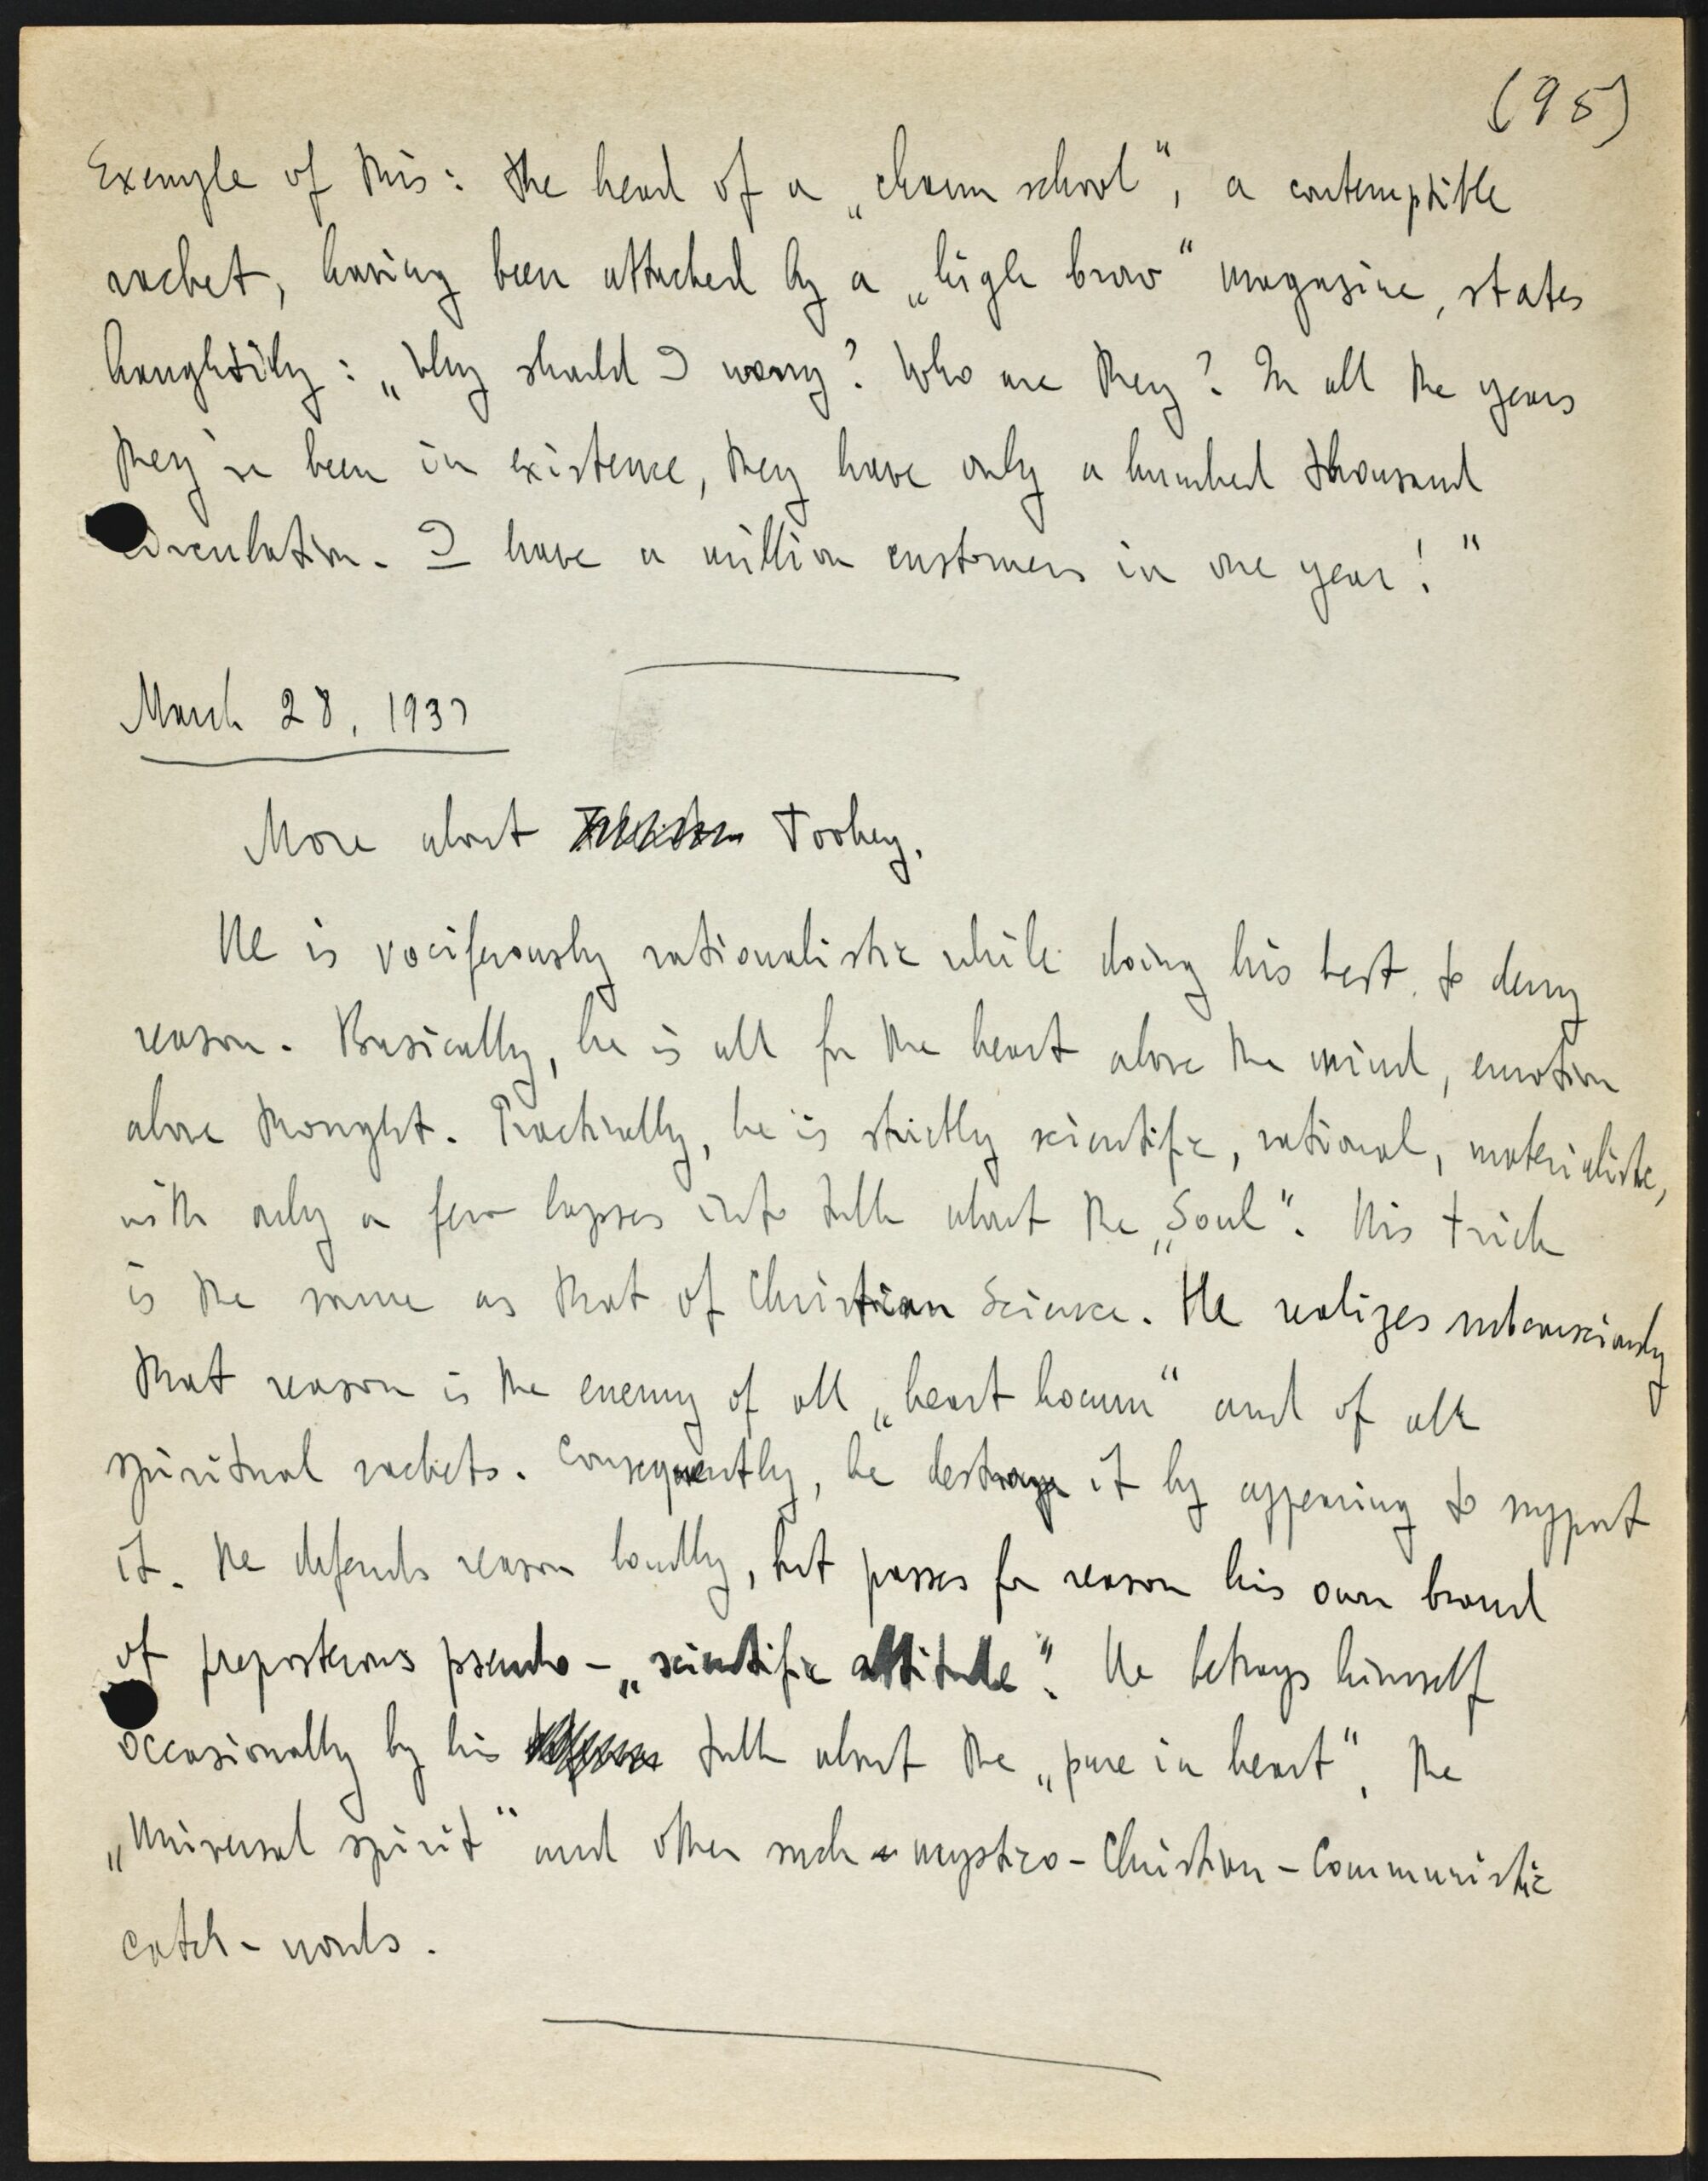 (95)
Example of this: the head of a „charm school“, a contemptible
racket, having been attacked by a „high brow“ magazine, states
haughtily: „Why should I worry? Who are they? In all the years
they've been in existence, they have only a hundred thousand
circulation. I have a million customers in one year!“
March 28, 1937
More about Toohey.
He is vociferously rationalistic while doing his best to deny
reason. Basically, he is all for the heart above the mind, emotion
above thought. Practically, he is strictly scientific, rational, materialistic,
with only a few lapses into talk about the „Soul“. His trick
is the same as that of Christian Science. He realizes subconsciously
that reason is the enemy of all „heart hocum“ and of all
spiritual rackets. Consequently, he destroys it by appearing to support
it. He defends reason loudly, but passes for reason his own brand
of preposterous pseudo-„scientific attitude“. He betrays himself
occasionally by his talk about the „pure in heart“, the
„Universal spirit“ and other such mystico-Christian-Communistic
catch-words.